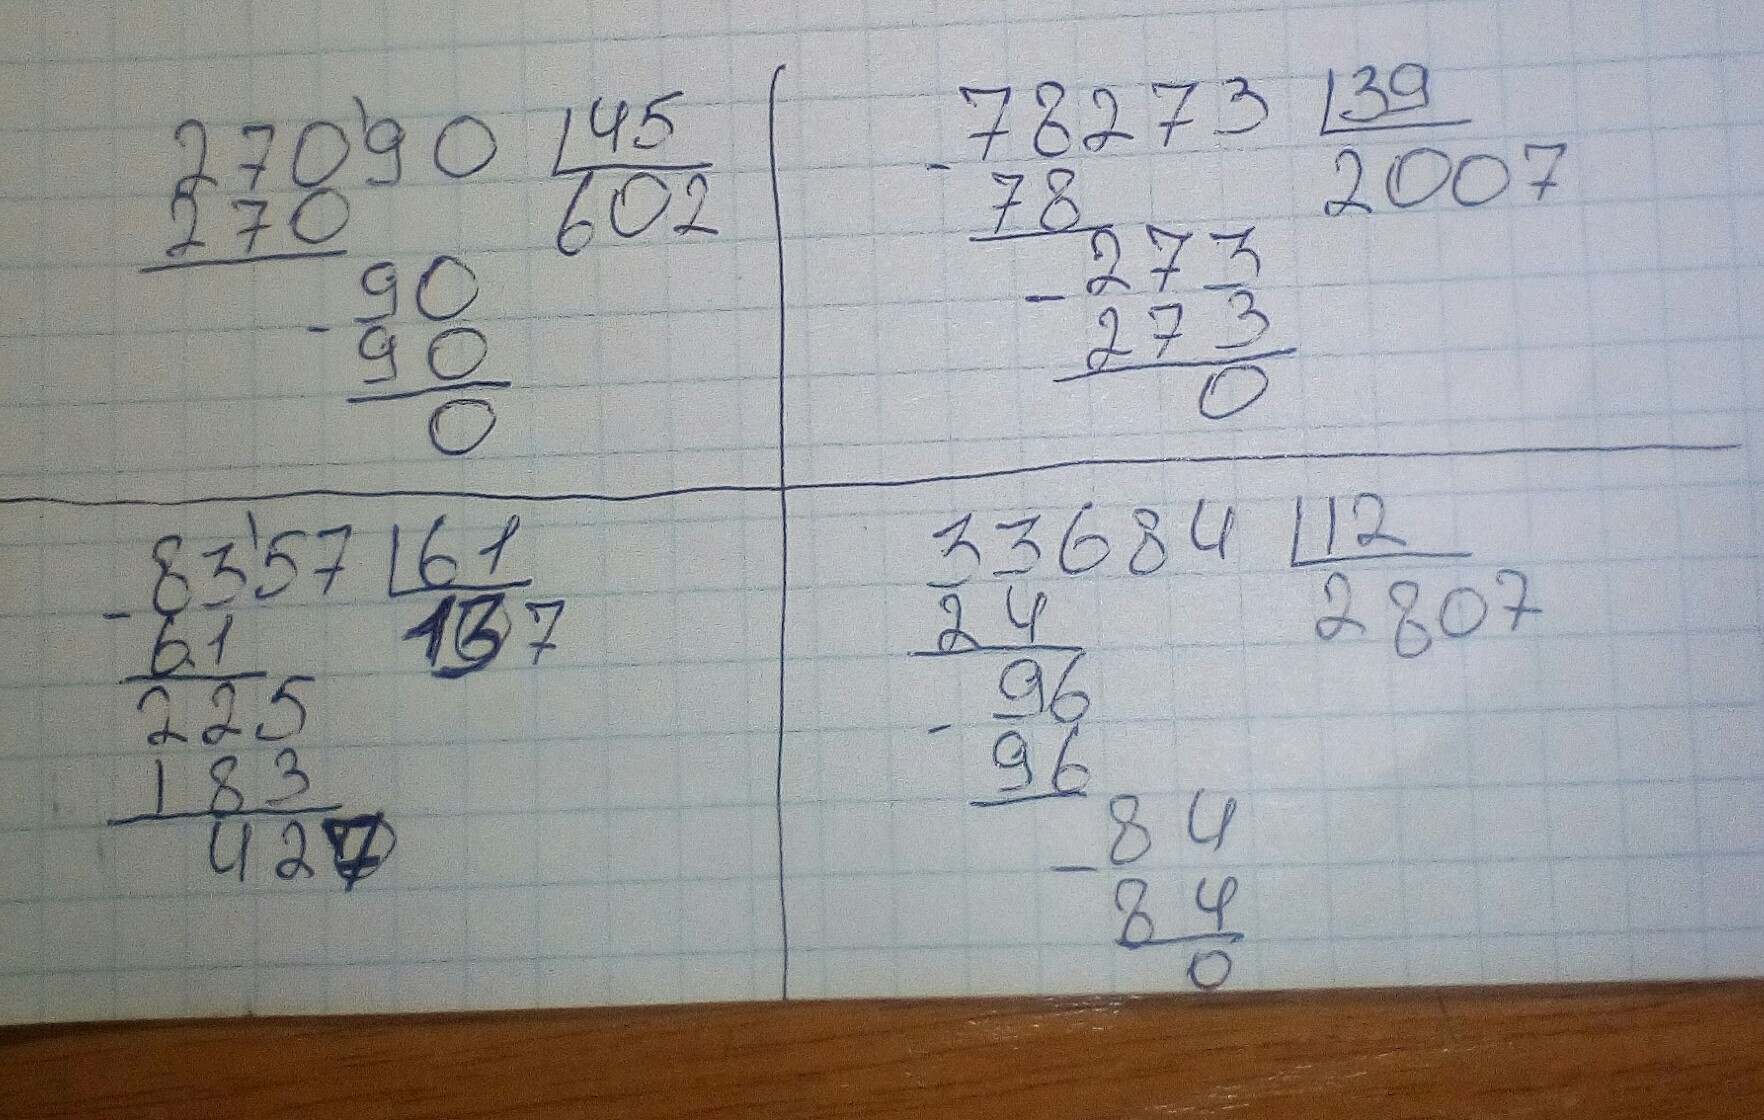 27090 45
270 602
90
- 90
0
78273 39
- 78 2007
273
- 273
0
8357 61
- 61 137
225
183
427
33684 12
24 2807
96
- 96
84
- 84
0